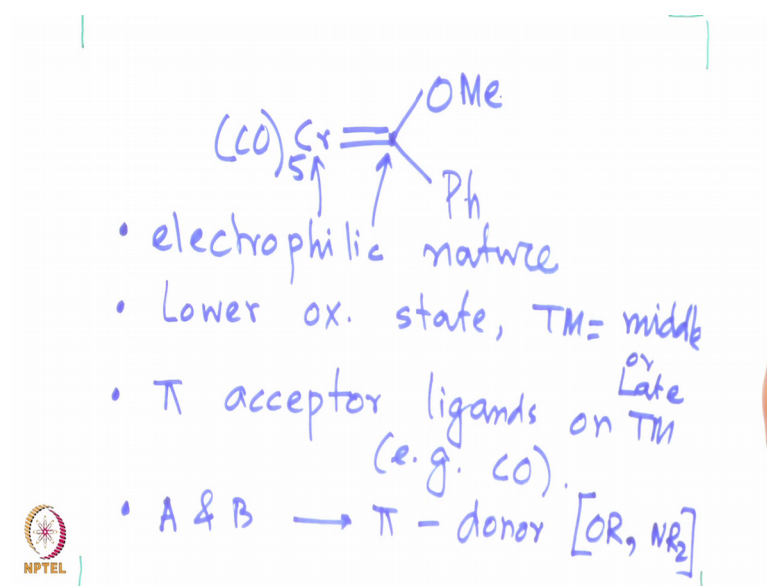 OMe
(CO)5Cr
Ph
• electrophilic nature
• Lower ox. state, TM= middle
or
Late
• π acceptor ligands on TM
(e.g. CO).
• A & B → π - donor [OR, NR2]
NPTEL